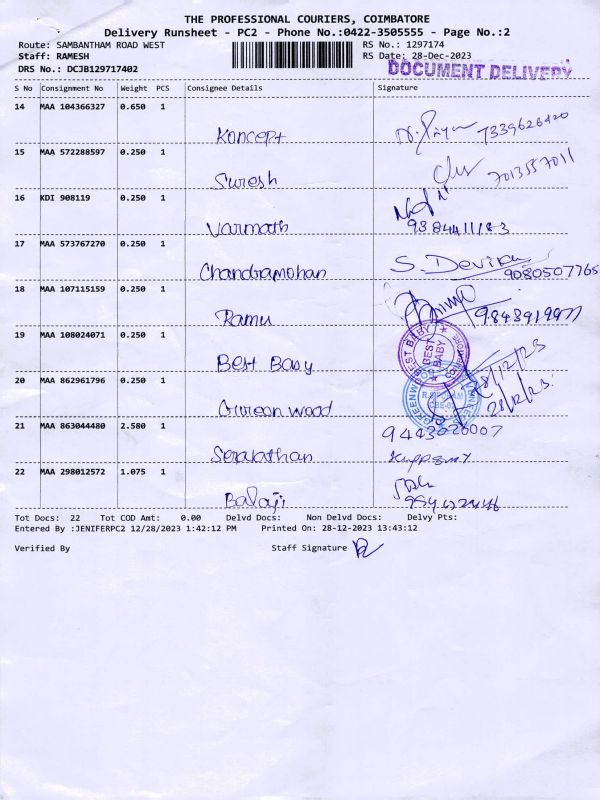 THE PROFESSIONAL COURIERS, COIMBATORE
Delivery Runsheet - PC2 - Phone No.:0422-3505555 - Page No.:2
Route: SAMBANTHAM ROAD WEST RS No.: 1297174
Staff: RAMESH RS Date: 28-Dec-2023
DRS No.: DCJB129717402 DOCUMENT DELIVERY
S No Consignment No Weight PCS Consignee Details Signature
14 MAA 104366327 0.650 1
Koncept
15 MAA 572288597 0.250 1
Suresh 7013557011
16 KDI 908119 0.250 1
Varmath
17 MAA 573767270 0.250 1 S. Devika
Chandramohan 9080507765
18 MAA 107115159 0.250 1
Ramu 9843919977
19 MAA 108024071 0.250 1 BEST BABY
BEST BABY
Best Baby 28/12/23
20 MAA 862961796 0.250 1 R.S.PURAM
28/12/23
21 MAA 863044480 2.580 1
22 MAA 298012572 1.075 1
Balaji
Tot Docs: 22 Tot COD Amt: 0.00 Delvd Docs: Non Delvd Docs: Delvy Pts:
Entered By :JENIFERPC2 12/28/2023 1:42:12 PM Printed On: 28-12-2023 13:43:12
Verified By Staff Signature